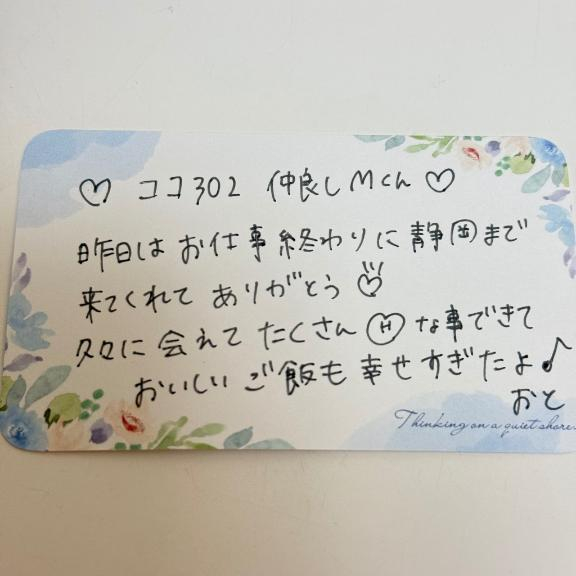 ♡ ココ302 仲良しMくん ♡
昨日は お仕事 終わりに 静岡まで
来てくれて ありがとう♡
久々に 会えて たくさん Ⓗ な事できて
おいしい ご飯も 幸せすぎたよ♪
おと
Thinking on a quiet shore.